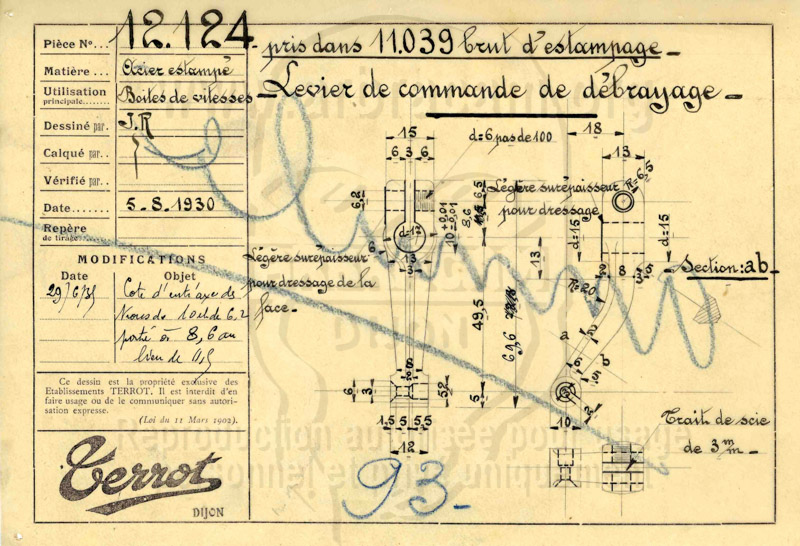 Pièce N°... 12.124 - pris dans 11.039 brut d'estampage -
Matière... Acier estampé
Utilisation principale....... Boîtes de vitesses
- Levier de commande de débrayage -
Dessiné par. J.R
Calqué par..
Vérifié par..
Date........ 5-8-1930
Repère de tirage.
MODIFICATIONS
Date Objet
29/6/35 Cote d'entr'axe des
porté à 8,6 au
lieu de 11,5
Ce dessin est la propriété exclusive des
Etablissements TERROT. Il est interdit d'en
faire usage ou de le communiquer sans autori-
sation expresse.
(Loi du 11 Mars 1902).
Terrot
DIJON
15
6 3 6
d=6 pas de 100
18
13
R=6,5
6,2
6,5
8,6
10 +0,01 -0,01
d=12
6
13
3
Légère surépaisseur
pour dressage
d=15
d=15
Légère surépaisseur
pour dressage de la
face-
13
2 8 3 5
Section:ab-
R=20
49,5
61,6
a
b
8
6 3
5,2
5
1,5 5 5,5
12
10
Trait de scie
de 3 m/m-
93-
Reproduction autorisée pour usage
personnel et privé uniquement